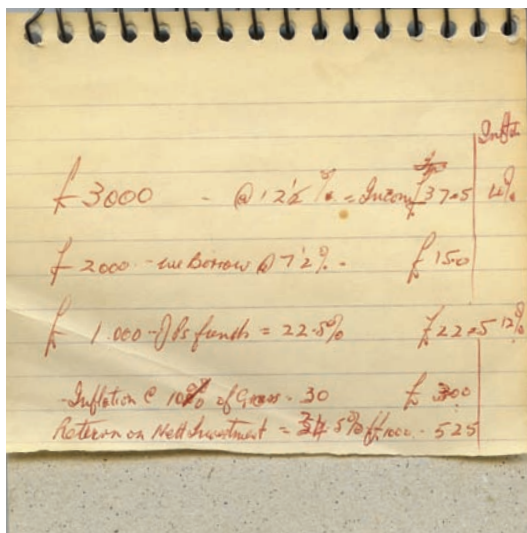 £3000 - @ 12½ % = Income £375
£2000 - we Borrow @ 7½% - £150
£ 1.000 - funds = 22.5% £225 12%
- Inflation @ 10% of Gross - 30 £ 300
Return on Nett Investment = 5% £1000 - 525